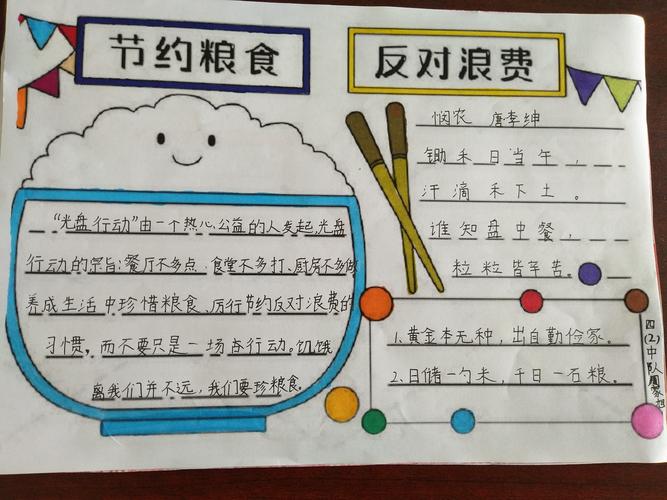 节约粮食
反对浪费
悯农 唐李绅
锄禾日当午，
汗滴禾下土。
谁知盘中餐，
粒粒皆辛苦。
"光盘行动"由一个热心公益的人发起,光盘
行动的宗旨:餐厅不多点、食堂不多打、厨房不多做
养成生活中珍惜粮食、厉行节约反对浪费的
习惯，而不要只是一场行动。饥饿
离我们并不远，我们要珍粮食。
1.黄金本无种，出自勤俭家。
2.日储一勺米，千日一石粮。
四(2)中队周家